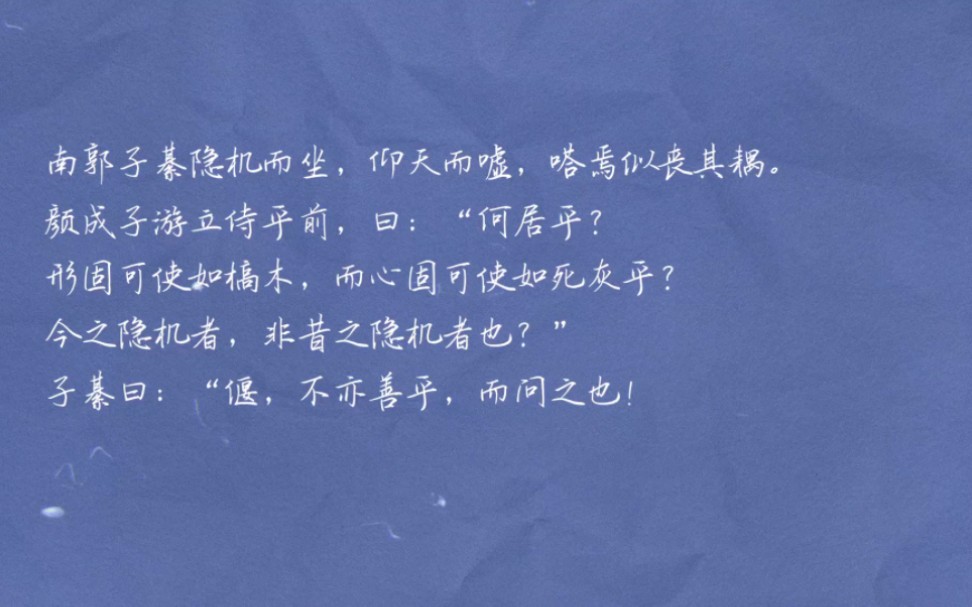 南郭子綦隐机而坐，仰天而嘘，嗒焉似丧其耦。
颜成子游立侍乎前，曰：“何居乎？
形固可使如槁木，而心固可使如死灰乎？
今之隐机者，非昔之隐机者也？”
子綦曰：“偃，不亦善乎，而问之也！